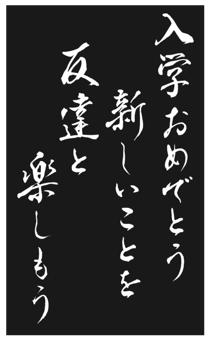 入学おめでとう
新しいことを
友達と
楽しもう